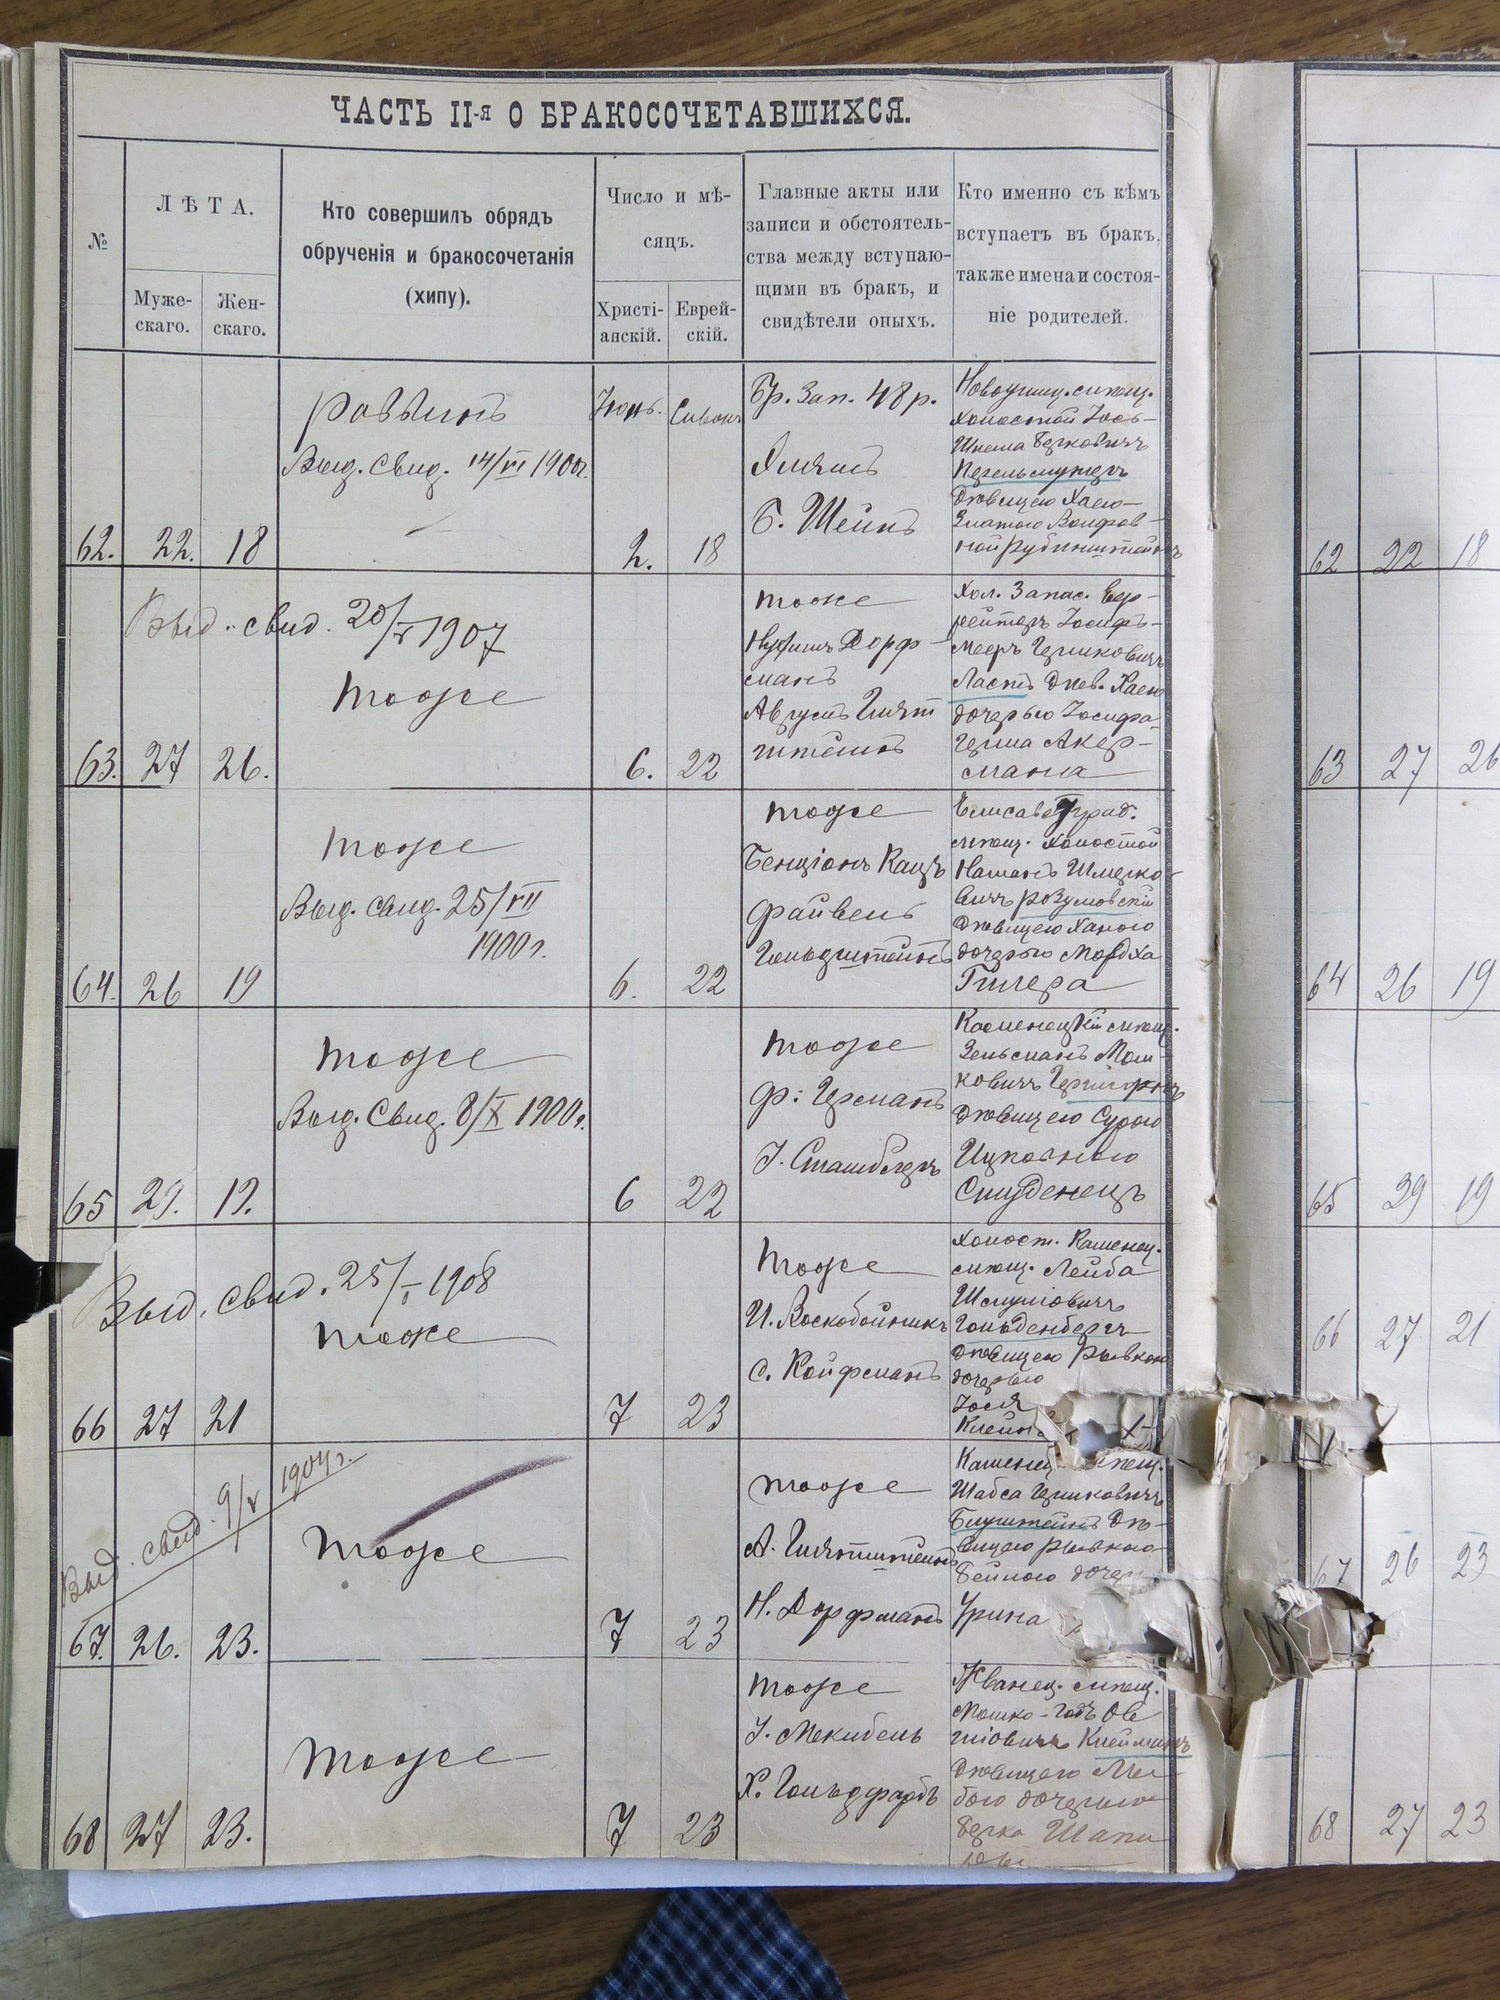 ЧАСТЬ II-я О БРАКОСОЧЕТАВШИХСЯ.
№
ЛѢТА.
Муже-
скаго.
Жен-
скаго.
Кто совершилъ обрядъ
обрученія и бракосочетанія
(хипу).
Число и мѣ-
сяцъ.
Христі-
анскій.
Еврей-
скій.
Главные акты или
записи и обстоятель-
ства между вступаю-
щими въ бракъ, и
свидѣтели оныхъ.
Кто именно съ кѣмъ
вступаетъ въ бракъ,
также имена и состоя-
ніе родителей.
62. 22. 18
Раввинъ
Выд. Свид. 14/VI 1900г.
Іюнь. Сивонъ
2. 18
Бр. Зап. 48 р.
Б. Шейнъ
Новоушиц. мѣщ.
Холостой Іось-
Шлема Берковичъ
Дѣвицею Хаею-
Златою Волфов-
ной Рубинштейнъ
63. 27 26.
Выд. свид. 20/V 1907
тоже
6. 22
тоже
Нухимъ Дорф-
манъ
Августъ Глят
штейнъ
Хол. Запас. Еф-
рейторъ Іосифъ-
Мееръ Гершковичъ
Ластъ Дѣв. Хаею
дочерью Іосифа-
Герша Акер-
мана
64. 26 19
тоже
Выд. свид. 25/VII
1900г.
6. 22
тоже
Бенціонъ Кацъ
Файвель
Гольдштейнъ
Елисаветград.
мѣщ. Холостой
Натанъ Шмерко-
вичъ Розумовскій
Дѣвицею Ханою
дочерью Мордха
Гилера
65 29. 19.
тоже
Выд. Свид. 8/X 1900г.
6 22
тоже
Ф. Церманъ
І. Сташбергъ
Каменецкій мѣщ.
Зельманъ Мош-
ковичъ
Дѣвицею Сурою
Ицковною
Студенецъ
66 27 21
Выд. Свид. 25/I 1908
тоже
7 23
тоже
И. Воскобойникъ
С. Койфманъ
Холост. Каменец.
мѣщ. Лейба
Шмуліовичъ
Гольденбергъ
Дѣвицею Рывкою
дочерью
Іося
67. 26. 23.
Выд. свид. 9/V 1904г.
тоже
7 23
тоже
А. Глятштейнъ
Н. Дорфманъ
Каменец.
Шабса Гершковичъ
Блуштейнъ Дѣ-
вицею Рывкою-
Бейлою дочер
Урина
68 27 23.
тоже
7 23
тоже
І. Мекибель
Х. Гольдфарбъ
Жванец. мѣщ.
Мошко-Годъ Ов
шіовичъ Клейманъ
Дѣвицею Ма-
бою дочерью
Берка Шапи
ры
62 22 18
63 27 26
64 26 19
65 29 19
66 27 21
67 26 23
68 27 23